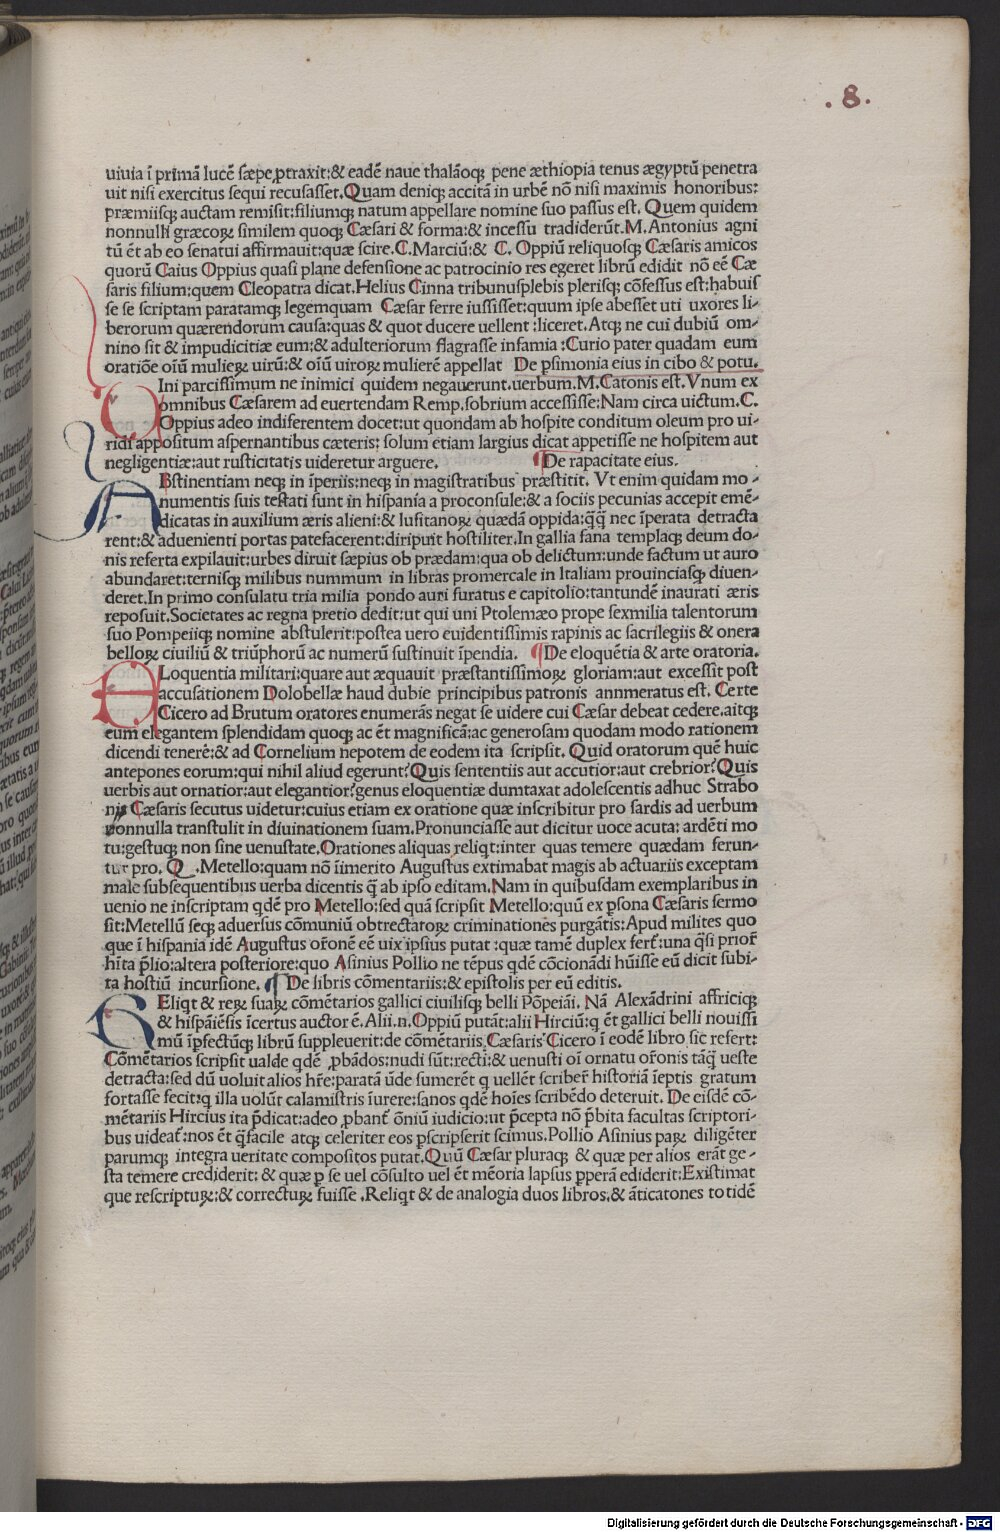 .8.
uiuia ī primā lucē sæpe ꝓtraxit:& eadē naue thalāoqꝫ pene æthiopia tenus ægyptū penetra
uit nisi exercitus sequi recusasset.Quam deniqꝫ accitā in urbē nō nisi maximis honoribus:
præmiisqꝫ auctam remisit:filiumqꝫ natum appellare nomine suo passus est. Quem quidem
nonnulli græcoꝝ similem quoqꝫ Cæsari & forma:& incessu tradiderūt.M.Antonius agni
tū ēt ab eo senatui affirmauit:quæ scire.C.Marciū:& C. Oppiū reliquosqꝫ Cæsaris amicos
quorū Caius Oppius quasi plane defensione ac patrocinio res egeret librū edidit nō eē Cæ
saris filium:quem Cleopatra dicat.Helius Cinna tribunusplebis plerisqꝫ cōfessus est:habuis
se se scriptam paratamqꝫ legemquam Cæsar ferre iussisset:quum ipse abesset uti uxores li-
berorum quærendorum causa:quas & quot ducere uellent :liceret.Atqꝫ ne cui dubiū om-
nino sit & impudicitiæ eum:& adulteriorum flagrasse infamia :Curio pater quadam eum
oratiōe oiū mulieꝝ uirū:& oiū uiroꝝ mulierē appellat De psimonia eius in cibo & potu.
Ini parcissimum ne inimici quidem negauerunt.uerbum.M.Catonis est.Vnum ex
omnibus Cæsarem ad euertendam Remp.sobrium accessisse:Nam circa uictum.C.
Oppius adeo indiferentem docet:ut quondam ab hospite conditum oleum pro ui-
ridi appositum aspernantibus cæteris: solum etiam largius dicat appetisse ne hospitem aut
negligentiæ:aut rusticitatis uideretur arguere. ¶De rapacitate eius.
ABstinentiam neqꝫ in īperiis:neqꝫ in magistratibus præstitit. Vt enim quidam mo-
numentis suis testati sunt in hispania a proconsule:& a sociis pecunias accepit emē-
dicatas in auxilium æris alieni:& lusitanoꝝ quædā oppida:q̄q̄ nec īperata detracta
rent:& aduenienti portas patefacerent:diripuit hostiliter.In gallia fana templaqꝫ deum do-
nis referta expilauit:urbes diruit sæpius ob prædam:qua ob delictum:unde factum ut auro
abundaret:ternisqꝫ milibus nummum in libras promercale in Italiam prouinciasqꝫ diuen-
deret.In primo consulatu tria milia pondo auri furatus e capitolio:tantundē inaurati æris
reposuit.Societates ac regna pretio dedit:ut qui uni Ptolemæo prope sexmilia talentorum
suo Pompeiiqꝫ nomine abstulerit:postea uero euidentissimis rapinis ac sacrilegiis & onera
belloꝝ ciuiliū & triūphorū ac numerū sustinuit īpendia. ¶De eloquētia & arte oratoria.
ELoquentia militari:quare aut æquauit præstantissimoꝝ gloriam:aut excessit post
accusationem Dolobellæ haud dubie principibus patronis annmeratus est. Certe
Cicero ad Brutum oratores enumerās negat se uidere cui Cæsar debeat cedere.aitqꝫ
eum elegantem splendidam quoqꝫ ac ēt magnificā:ac generosam quodam modo rationem
dicendi tenerē:& ad Cornelium nepotem de eodem ita scripsit. Quid oratorum quē huic
antepones eorum:qui nihil aliud egerunt?Quis sententiis aut accutior:aut crebrior?Quis
uerbis aut ornatior:aut elegantior?genus eloquentiæ dumtaxat adolescentis adhuc Strabo
nis Cæsaris secutus uidetur:cuius etiam ex oratione quæ inscribitur pro sardis ad uerbum
nonnulla transtulit in diuinationem suam.Pronunciasse aut dicitur uoce acuta: ardēti mo
tu:gestuqꝫ non sine uenustate.Orationes aliquas reliqt:inter quas temere quædam ferun-
tur pro. Q .Metello:quam nō īimerito Augustus extimabat magis ab actuariis exceptam
male subsequentibus uerba dicentis q̄ ab ipso editam.Nam in quibusdam exemplaribus in
uenio ne inscriptam qdē pro Metello:sed quā scripsit Metello:quū ex ꝑsona Cæsaris sermo
sit:Metellū seqꝫ aduersus cōmuniū obtrectatoꝝ criminationes purgātis:Apud milites quo
que ī hispania idē Augustus orōnē eē uix ipsius putat :quæ tamē duplex fert̄:una q̄si priori
hīta p̄lio:altera posteriore:quo Asinius Pollio ne tēpus qdē cōcionādi hūisse eū dicit subi-
ta hostiū incursione. ¶De libris cōmentariis:& epistolis per eū editis.
REliqt & reꝝ suaꝝ cōmētarios gallici ciuilisqꝫ belli Pōpeiāi. Nā Alexādrini affriciqꝫ
& hispāiēsis īcertus auctor ē.Alii.n.Oppiū putāt:alii Hirciū:q ēt gallici belli nouissi
mū īpfectūqꝫ librū suppleuerit:de cōmētariis.Cæsaris Cicero ī eodē libro sic refert:
Cōmētarios scripsit ualde qdē ꝓbādos:nudi sūt:recti:& uenusti oī ornatu orōnis tāq̄ ueste
detracta:sed dū uoluit alios hr̄e:paratā ūde sumerēt q uellēt scriber̄ historiā īeptis gratum
fortasse fecit:q illa uolūt calamistris īurere:sanos qdē hoīes scribēdo deteruit. De eisdē cō-
mētariis Hircius ita p̄dicat:adeo ꝓbant̄ ōniū iudicio:ut p̄cepta nō p̄bita facultas scriptori-
bus uideat̄:nos ēt q̄facile atqꝫ celeriter eos pscripserit scimus.Pollio Asinius paꝝ diligēter
parumqꝫ integra ueritate compositos putat.Quū Cæsar pluraqꝫ & quæ per alios erāt ge-
sta temere crediderit: & quæ ꝑ se uel cōsulto uel ēt mēoria lapsus ꝑperā ediderit:Existimat
que rescripturꝝ:& correcturꝝ fuisse .Reliqt & de analogia duos libros.& āticatones totidē
Digitalisierung gefördert durch die Deutsche Forschungsgemeinschaft - DFG